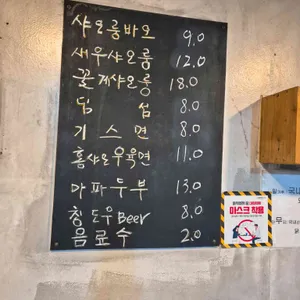 샤오룽바오 9.0
새우샤오룽 12.0
꽃게샤오룽 18.0
딤섬 8.0
기스면 8.0
홍샤오우육면 11.0
마파두부 13.0
칭도우Beer 8.0
음료수 2.0
마스크 착용